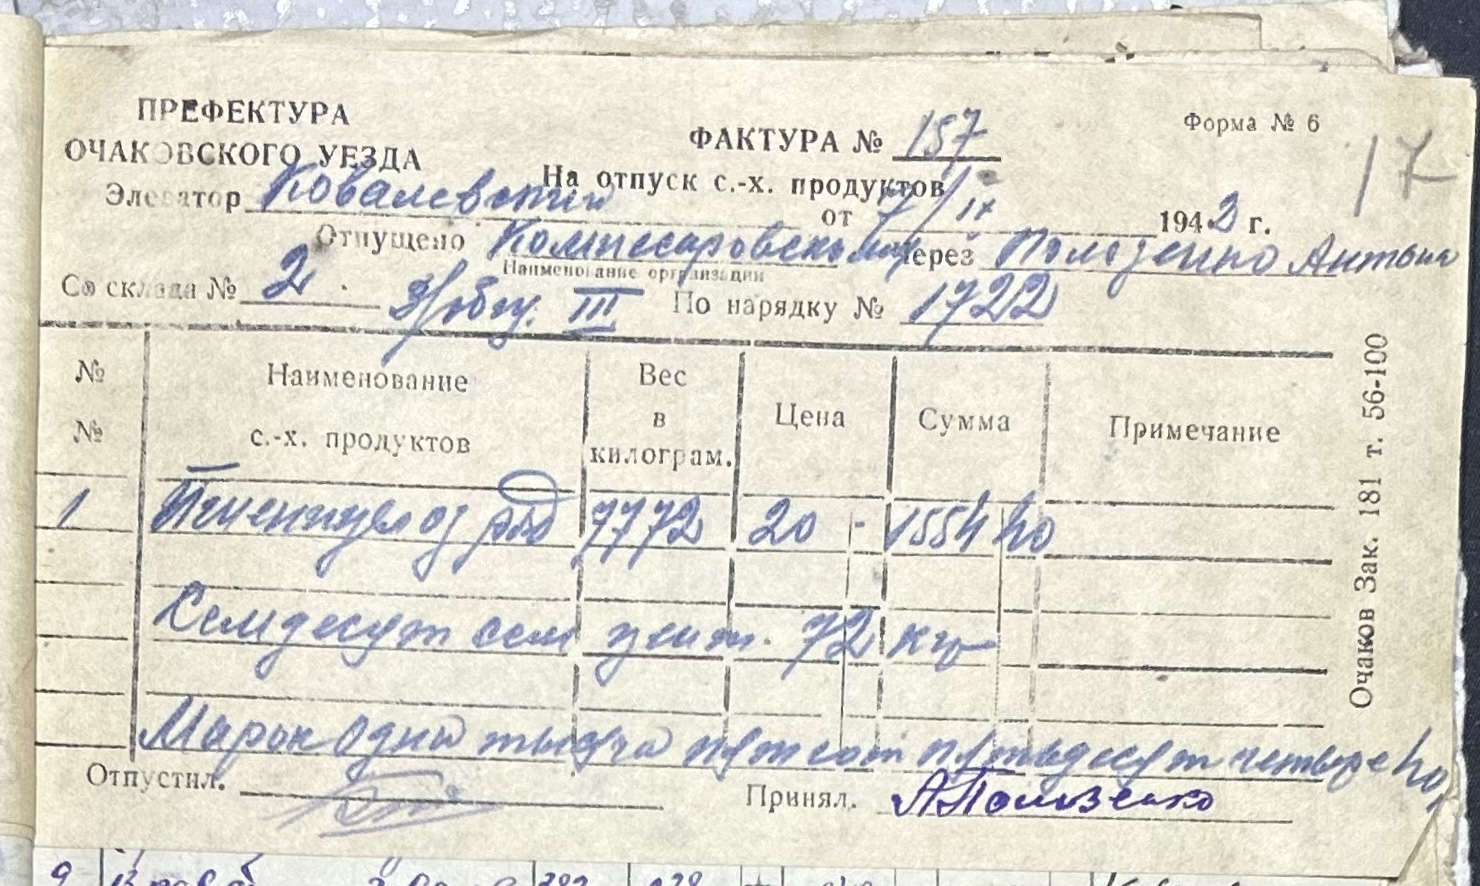 ПРЕФЕКТУРА
ОЧАКОВСКОГО УЕЗДА
ФАКТУРА № 157
Форма № 6
17
На отпуск с.-х. продуктов
Элеватор Ковалевский от 7/IX 1942 г.
Отпущено через Антон
Наименование организации
Со склада № 2. III По нарядку № 1722
№ №
Наименование с.-х. продуктов
Вес в килограм.
Цена
Сумма
Примечание
1 7772 20 - 1554 40
Семдесят сем цент. 72 кг
Марок одна тысяча пятсот пятьдесят четыре 40
Отпустил. Принял. А Ползенко
Очаков Зак. 181 т. 56-100
9